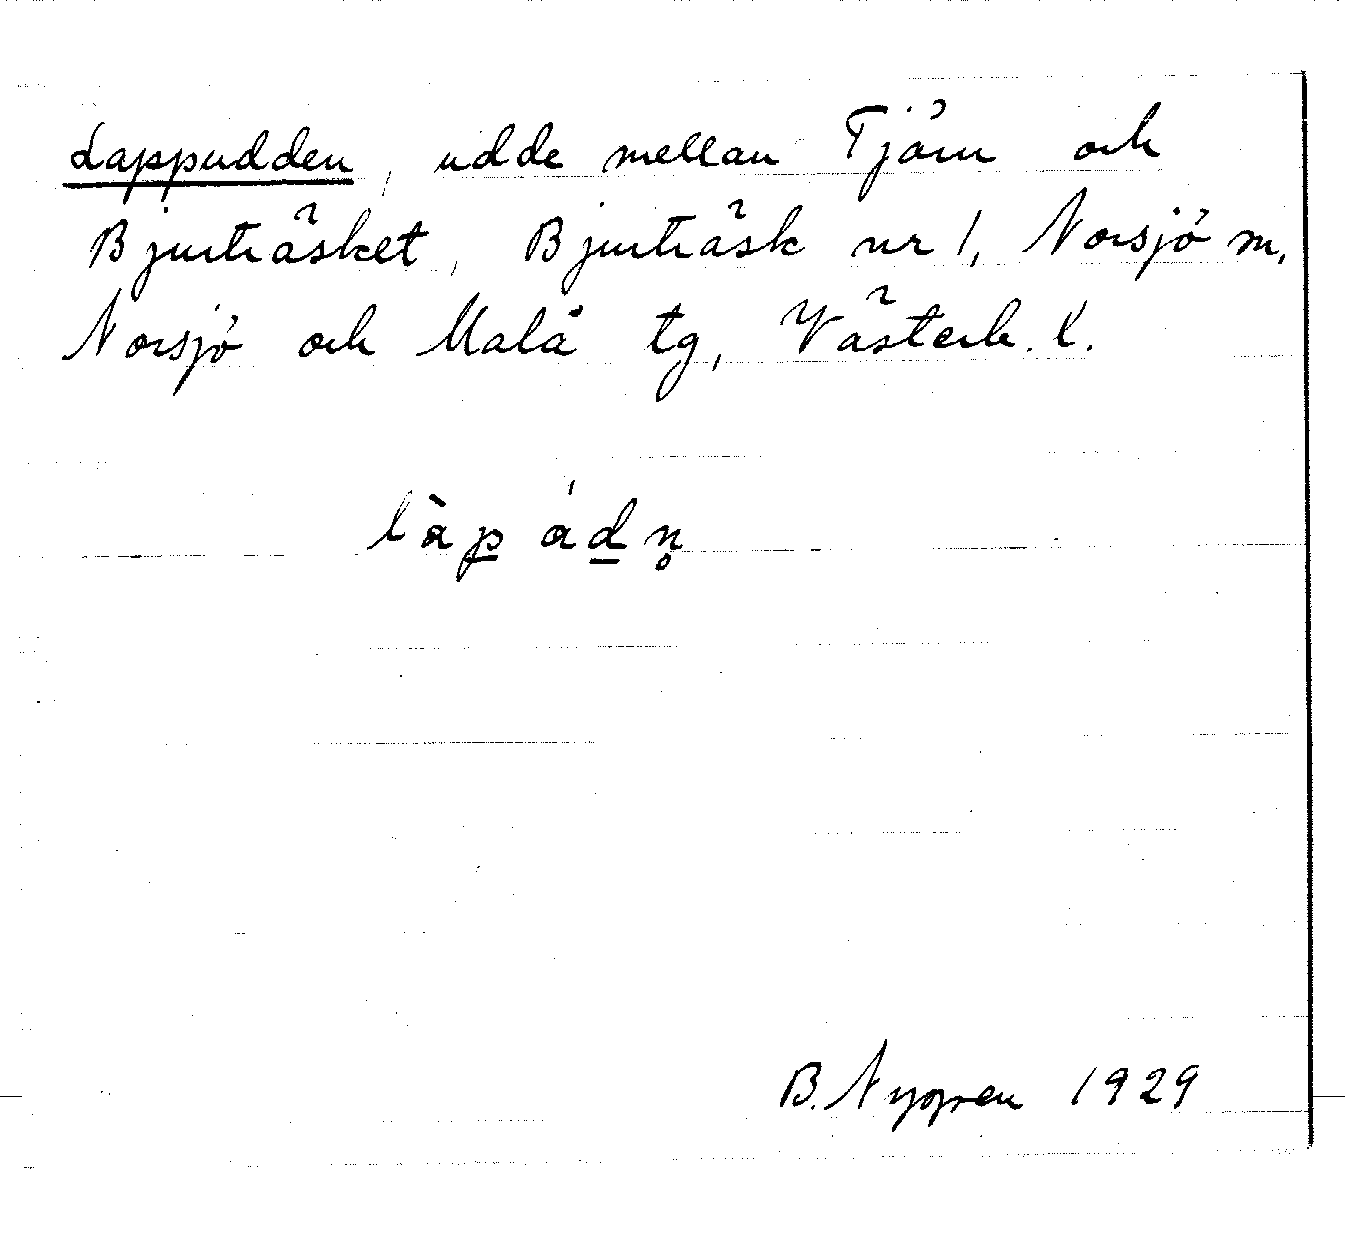 Lappudden, udde mellan Tjärn och
Bjurträsket, Bjurträsk nr 1, Norsjö sn,
Norsjö och Malå tg, Västerb. l.
làp̲ ád̲n̥
B. Nygren 1929